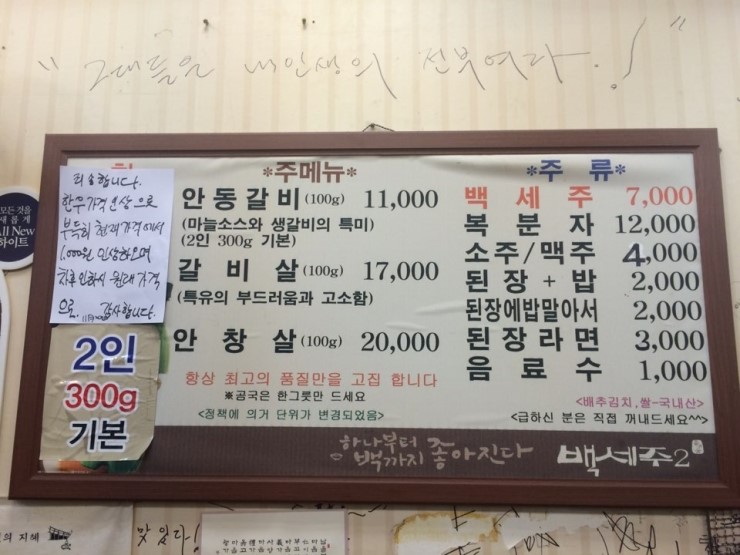 "그대들은 내인생의 선부여라.!"
*주메뉴*
안동갈비 (100g) 11,000
(마늘소스와 생갈비의 특미)
(2인 300g 기본)
갈비살 (100g) 17,000
(특유의 부드러움과 고소함)
안창살 (100g) 20,000
항상 최고의 품질만을 고집 합니다
※공국은 한그릇만 드세요
<정책에 의거 단위가 변경되었음>
*주류*
백세주 7,000
복분자 12,000
소주/맥주 4,000
된장+밥 2,000
된장에밥말아서 2,000
된장라면 3,000
음료수 1,000
<배추김치,쌀-국내산>
<급하신 분은 직접 꺼내드세요^^>
하나부터
백까지 좋아진다
백세주2
죄송합니다.
한우가격인상 으로
부득히 현재가격에서
1,000원 인상하오며
차후 인하시 원래 가격
으로. 감사합니다.
2인
300g
기본
모든 것을
새롭게
All New
하이트
의 지혜
맛있다!